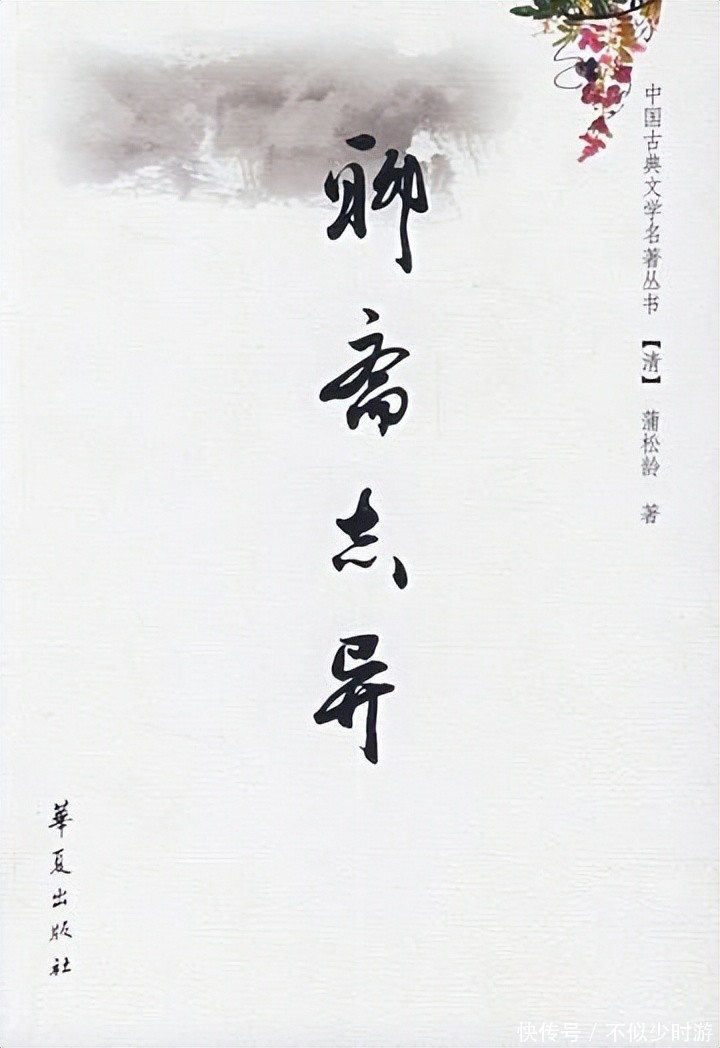 中国古典文学名著丛书 【清】 蒲松龄 著
聊斋志异
華夏出版社
快传号 / 不似少时游